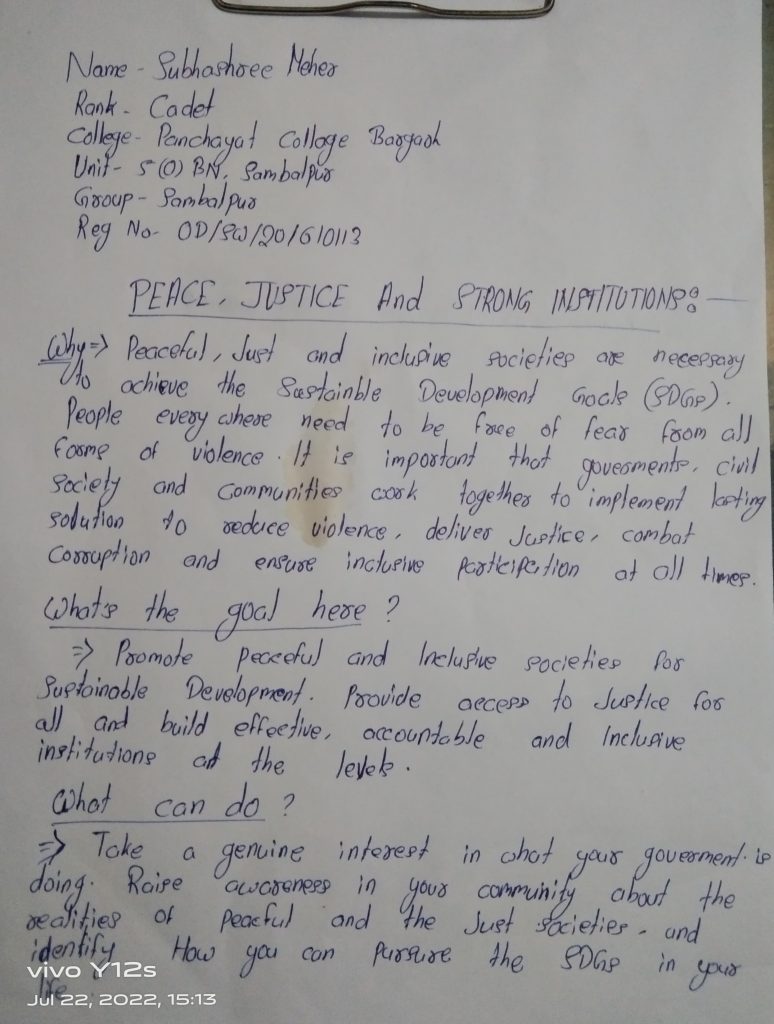 Name - Subhashree Meher
Rank - Cadet
College - Panchayat Collage Bargarh
Unit - 5 (O) BN, Sambalpur
Group - Sambalpur
Reg No- OD/SW/20/610113
PEACE, JUSTICE And STRONG INSTITUTIONS:-
Why => Peaceful, Just and inclusive societies are necessary
to achieve the Sastainble Development Goals (SDGs).
People everywhere need to be free of fear from all
forms of violence. It is important that goverments, civil
society and communities work together to implement lasting
solution to reduce violence, deliver Justice, combat
Corruption and ensure inclusive participation at all times.
What's the goal here?
=> Promote peaceful and Inclusive societies for
Sustainable Development. Provide access to Justice for
all and build effective, accountable and Inclusive
institutions at the levels.
What can do?
=> Take a genuine interest in what your goverment is
doing. Raise awareness in your community about the
realities of peacful and the Just societies, and
identify How you can pursure the SDGs in your
life
vivo Y12s
Jul 22, 2022, 15:13